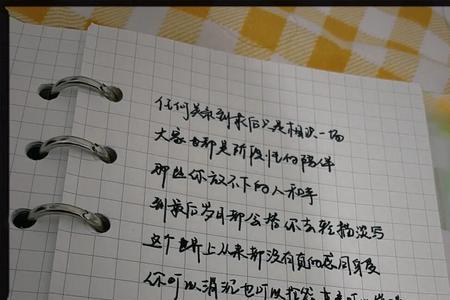 任何关系到最后只是相识一场
大家都是阶段性的陪伴
那些你放不下的人和事
到最后岁月都会替你去轻描淡写
这个世界上从来都没有真的感同身受
你可以消沉也可以抱怨